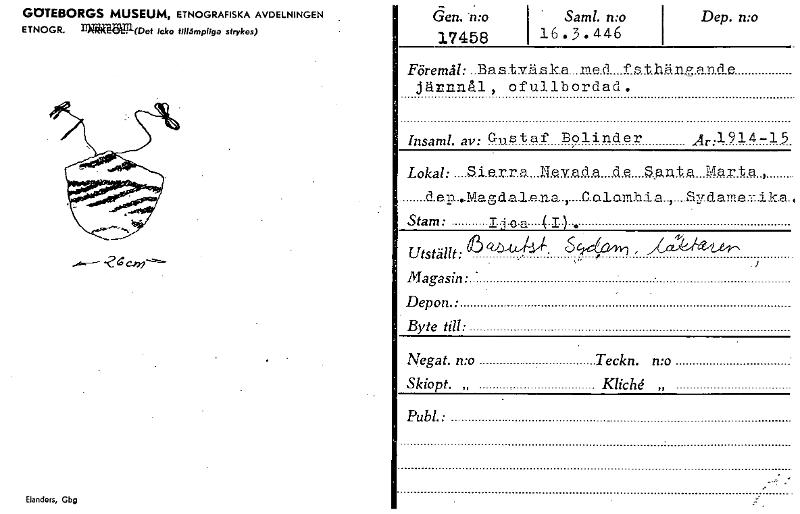 GÖTEBORGS MUSEUM, ETNOGRAFISKA AVDELNINGEN
ETNOGR. (Det icke tillämpliga strykes)
26cm
Elanders, Gbg
Gen. n:o Saml. n:o Dep. n:o
17458 16.3.446
Föremål: Bastväska med fsthängande
järnnål, ofullbordad.
Insaml. av: Gustaf Bolinder År: 1914-15
Lokal: Sierra Nevada de Santa Marta,
dep. Magdalena, Colombia, Sydamerika.
Stam: Ijca (I).
Utställt: Basutst. Sydam. läktaren
Magasin:
Depon.:
Byte till:
Negat. n:o Teckn. n:o
Skiopt. „ Kliché „
Publ.: